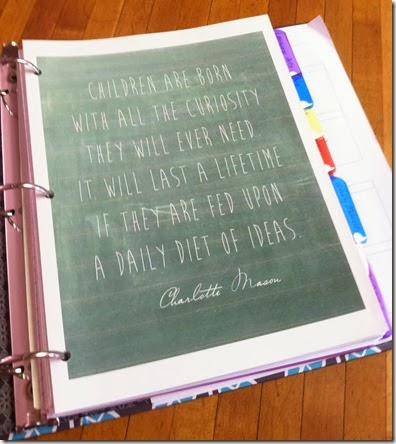 CHILDREN ARE BORN
WITH ALL THE CURIOSITY
THEY WILL EVER NEED
IT WILL LAST A LIFETIME
IF THEY ARE FED UPON
A DAILY DIET OF IDEAS.
Charlotte Mason